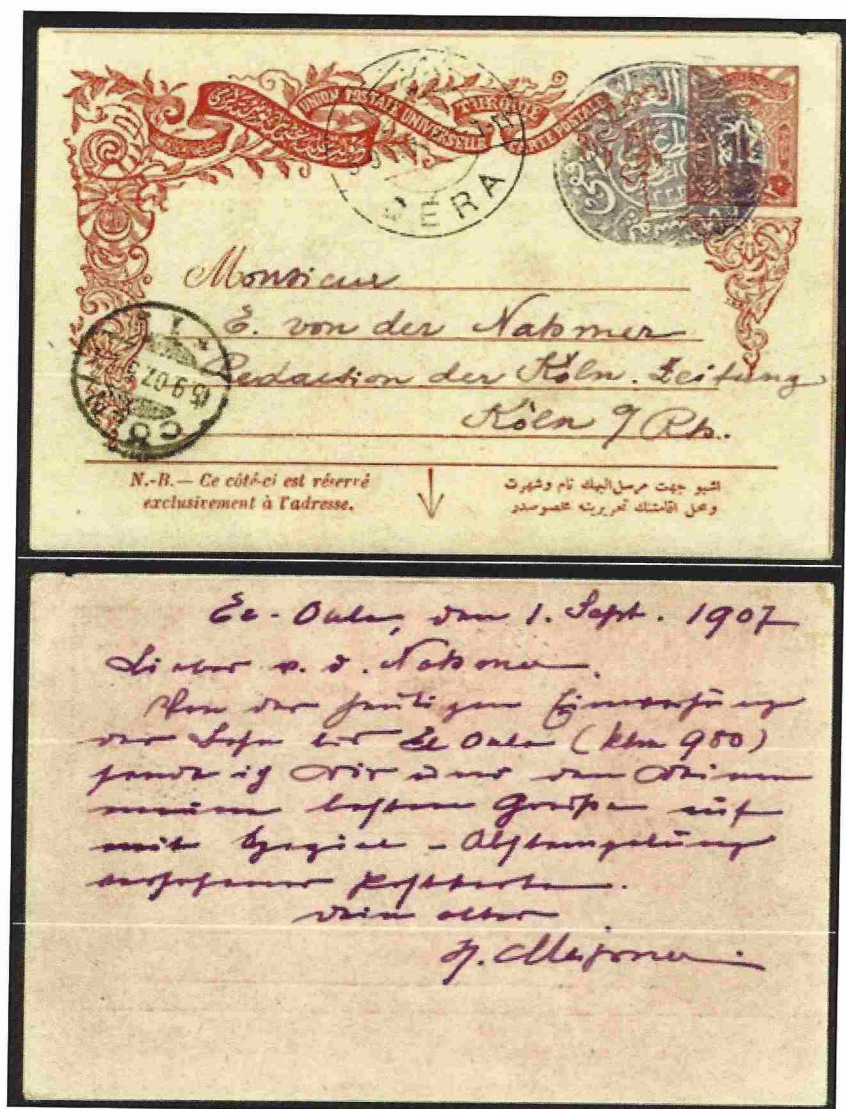 UNION POSTALE UNIVERSELLE
TURQUIE
CARTE POSTALE
PERA
Monsieur
E. von der Nahmer
Redaction der Köln. Zeitung
Köln a/Rh.
9.07
N.-B. — Ce côté-ci est réservé
exclusivement à l'adresse.
اشبو جهت مرسل اليهك نام وشهرت
ومحل اقامتنك تحريرينه مخصوصدر
El-Oula, den 1. Sept. 1907
Lieber v. d. Nahmer.
Von der heutigen Einweihung
der Bahn bis El Oula (klm 980)
sende ich Dir und den Deinen
meine besten Grüße auf
mit Spezial-Abstempelung
versehener Postkarte.
Dein alter
H. Meissner